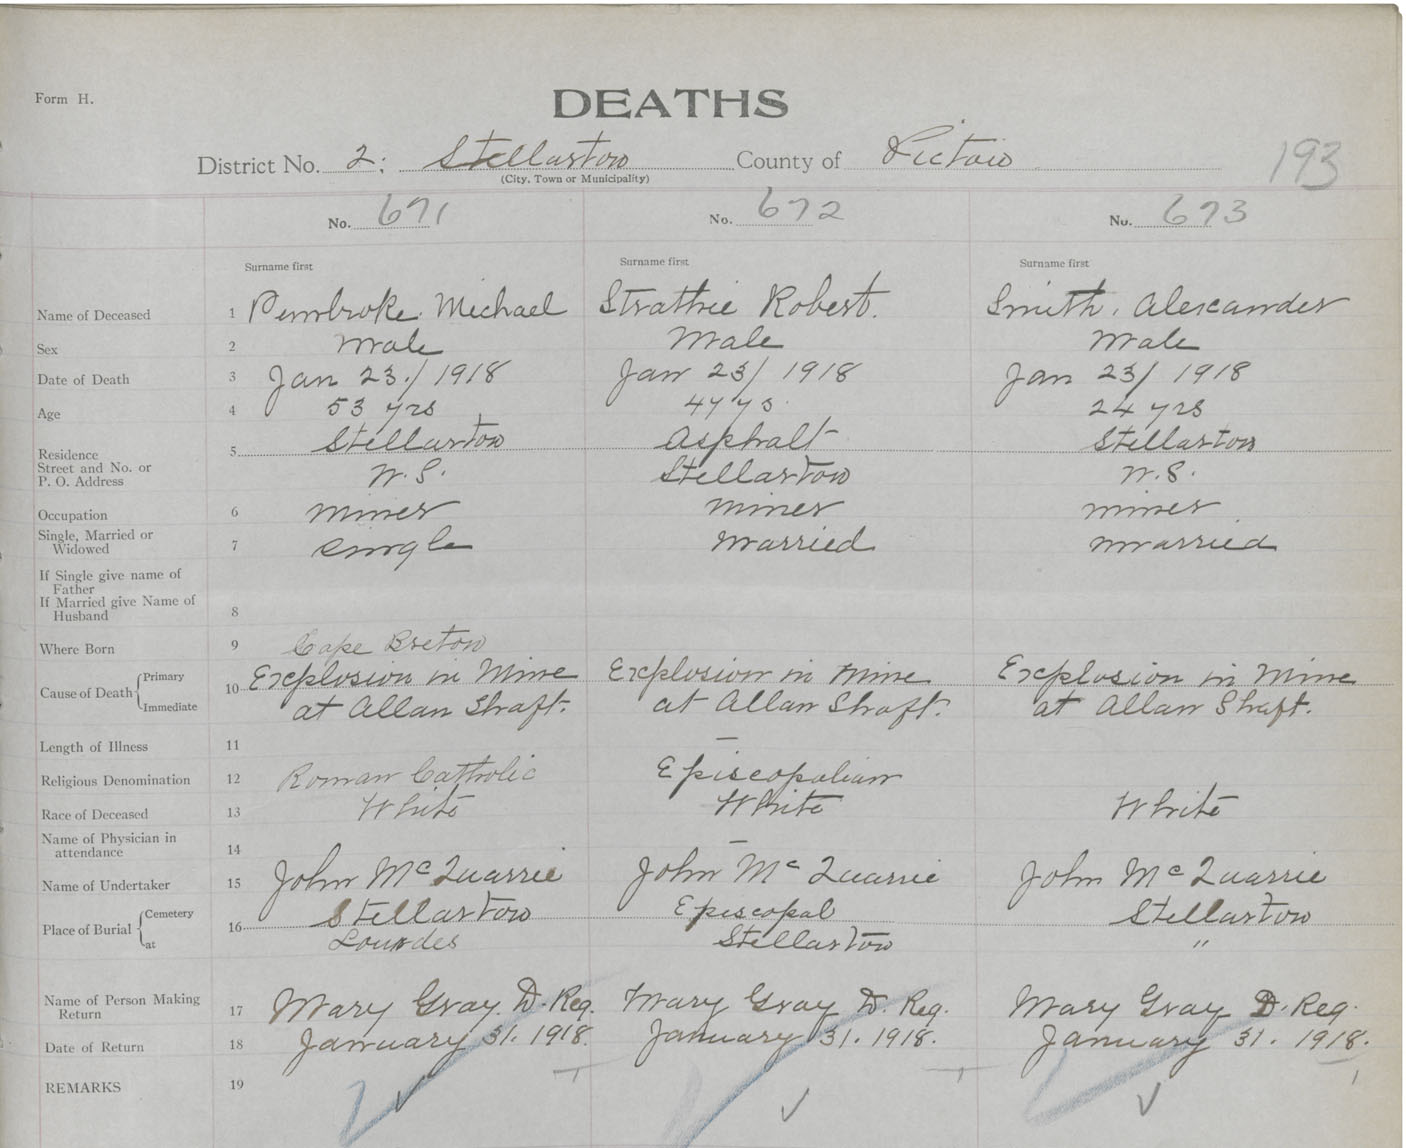 Form H.
DEATHS
District No. 2; Stellarton County of Pictou 193
(City, Town or Municipality)
No. 671 No. 672 No. 673
Surname first Surname first Surname first
Name of Deceased 1 Pembroke Michael Strathie Robert. Smith, Alexander
Sex 2 Male Male Male
Date of Death 3 Jan 23/ 1918 Jan 23/ 1918 Jan 23/ 1918
Age 4 53 yrs 47 ys. 24 yrs
Residence 5 Stellarton Asphalt Stellarton
Street and No. or
P. O. Address N.S. Stellarton N.S.
Occupation 6 Miner Miner Miner
Single, Married or
Widowed 7 Single Married Married
If Single give name of
Father
If Married give Name of
Husband 8
Where Born 9 Cape Breton
Cause of Death Primary 10 Explosion in Mine Explosion in Mine Explosion in Mine
Immediate at Allan Shaft. at Allan Shaft. at Allan Shaft.
Length of Illness 11 —
Religious Denomination 12 Roman Catholic Episcopalian
Race of Deceased 13 White White White
Name of Physician in
attendance 14 —
Name of Undertaker 15 John McQuarrie John McQuarrie John McQuarrie
Place of Burial Cemetery 16 Stellarton Episcopal Stellarton
at Lourdes Stellarton "
Name of Person Making
Return 17 Mary Gray D. Reg. Mary Gray D. Reg. Mary Gray D. Reg.
Date of Return 18 January 31. 1918. January 31. 1918. January 31. 1918.
REMARKS 19